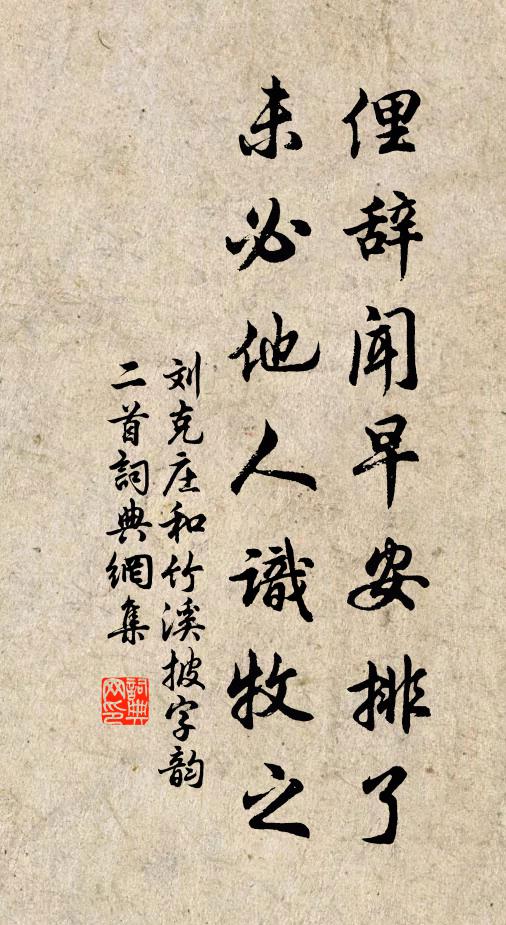 俚辞闻早安排了
未必他人識牧之
刘克庄和竹溪披字韵
二首詞典網集
詞典
网印